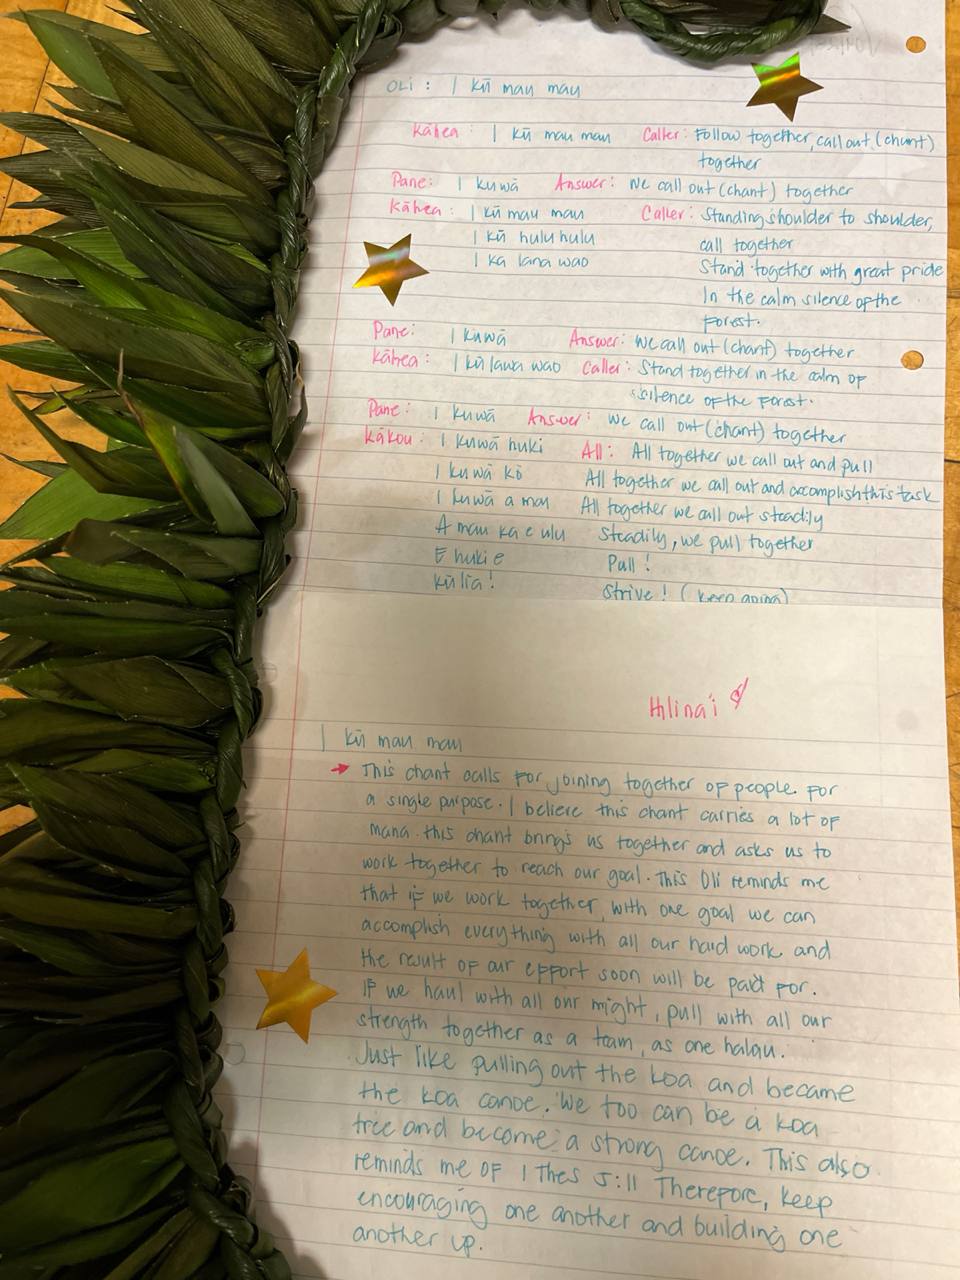 OLi : I kū mau mau
Kāhea : I kū mau mau Caller: Follow together, call out (chant)
together
Pane: I kuwā Answer: We call out (chant) together
Kāhea : I kū mau mau Caller: Standing shoulder to shoulder,
I kū hulu hulu call together
I ka lana wao Stand together with great pride
In the calm silence of the
Forest.
Pane: I kuwā Answer: We call out (chant) together
Kāhea : I kū lawa wao Caller: Stand together in the calm of
silence of the Forest.
Pane : I kuwā Answer: We call out (chant) together
Kākou : I kuwā huki All: All together we call out and pull
I kuwā kō All together we call out and accomplish this task
I kuwā a mau All together we call out steadily
A mau ka e ulu Steadily, we pull together
E huki e Pull!
Kū lia! Strive! (keep going)
Hilina'i
I kū mau mau
→ This chant calls for joining together of people for
a single purpose. I believe this chant carries a lot of
mana. this chant brings us together and asks us to
work together to reach our goal. This Oli reminds me
that if we work together, with one goal we can
accomplish everything with all our hard work, and
the result of our effort soon will be paid for.
If we haul with all our might, pull with all our
strength together as a team, as one halau.
Just like pulling out the koa and became
the koa canoe. We too can be a koa
tree and become a strong canoe. This also
reminds me of 1 Thes 5:11 Therefore, keep
encouraging one another and building one
another up.